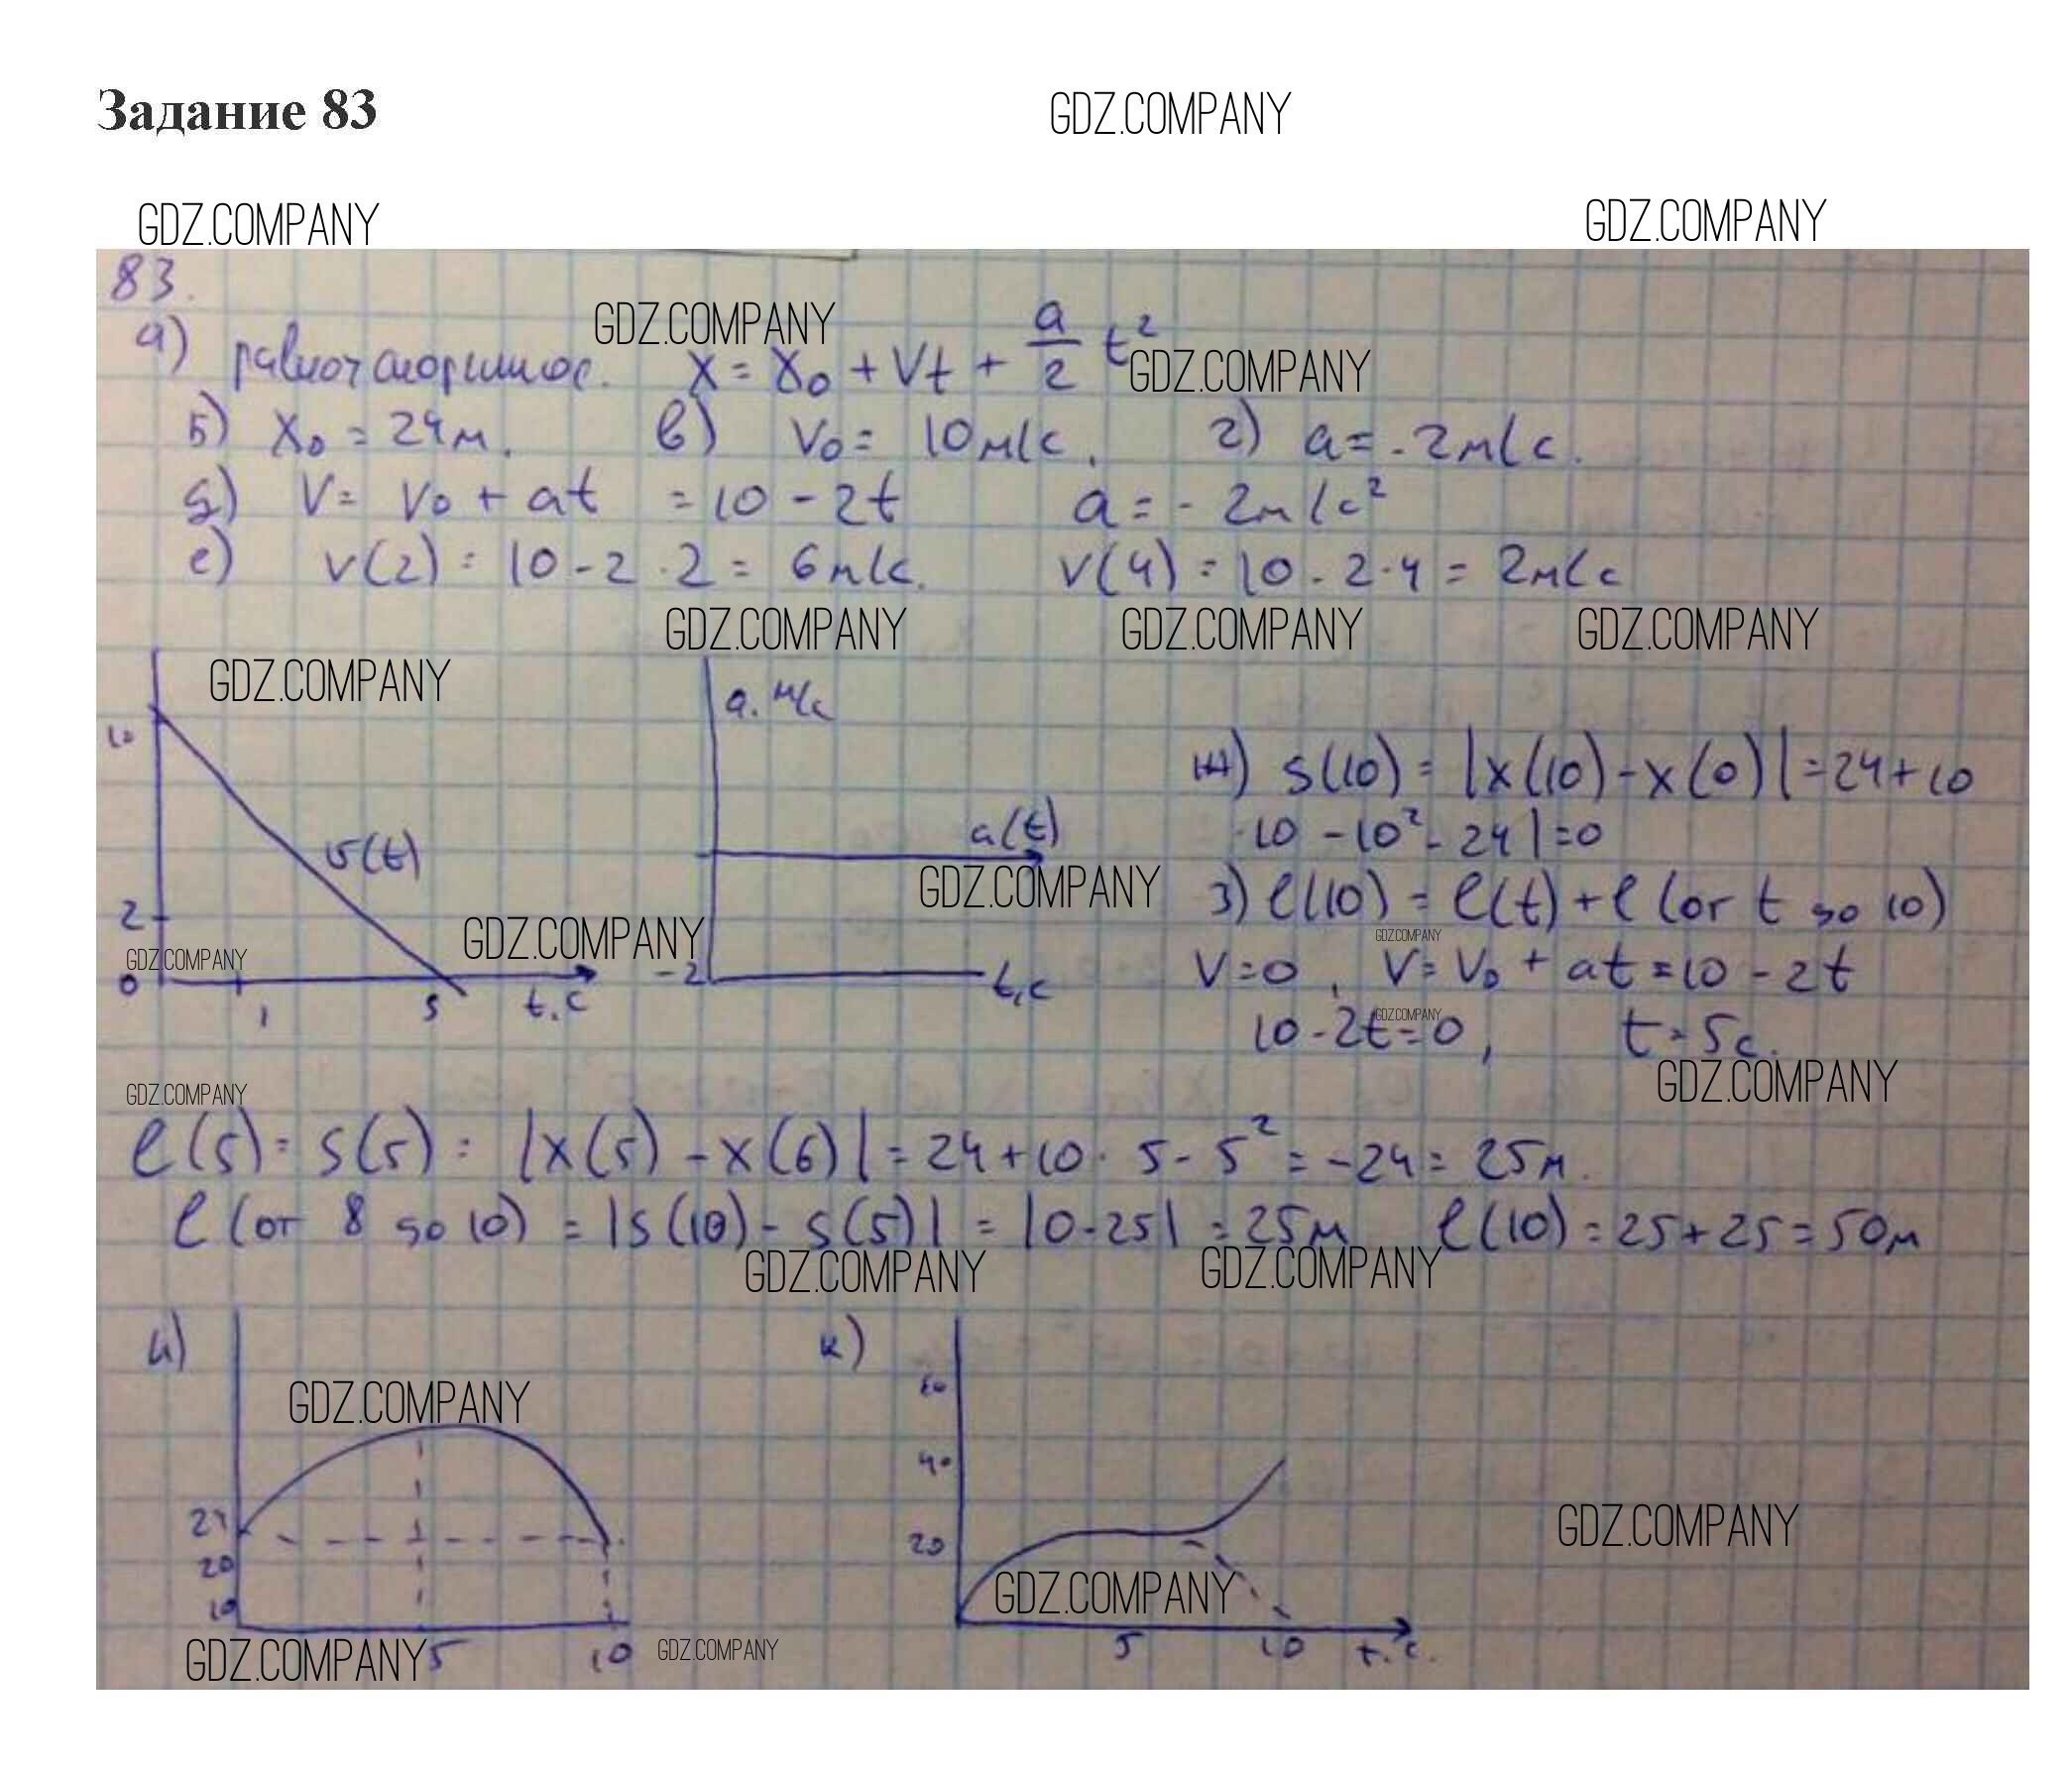 Задание 83
GDZ.COMPANY
GDZ.COMPANY GDZ.COMPANY
83.
GDZ.COMPANY
а) x = x₀ + Vt + a/2 t²
GDZ.COMPANY
б) x₀ = 24м. в) V₀ = 10м/с. г) a = -2м/с.
д) V = V₀ + at = 10 - 2t a = - 2м/с²
е) v(2) = 10 - 2 · 2 = 6м/с. v(4) = 10 - 2·4 = 2м/с
GDZ.COMPANY GDZ.COMPANY GDZ.COMPANY
GDZ.COMPANY
a. м/с
10
ж) s(10) = |x(10) - x(0)| = 24 + 10
·10 - 10² - 24| = 0
υ(t) a(t)
GDZ.COMPANY
з) l(10) = l(t) + l (от t до 10)
2
GDZ.COMPANY GDZ.COMPANY
GDZ.COMPANY
V = 0, V = V₀ + at = 10 - 2t
0 1 5 t,с -2 t,с
GDZ.COMPANY
10 - 2t = 0, t = 5с.
GDZ.COMPANY
GDZ.COMPANY
l(5) = s(5) = |x(5) - x(6)| = 24 + 10 · 5 - 5² = -24 = 25м.
l (от 8 до 10) = |s(10) - s(5)| = |0 - 25| = 25м l(10) = 25 + 25 = 50м
GDZ.COMPANY GDZ.COMPANY
и) к)
GDZ.COMPANY
60
40
24
20 20
GDZ.COMPANY
GDZ.COMPANY
10
5 10 5 10 t.с.
GDZ.COMPANY GDZ.COMPANY